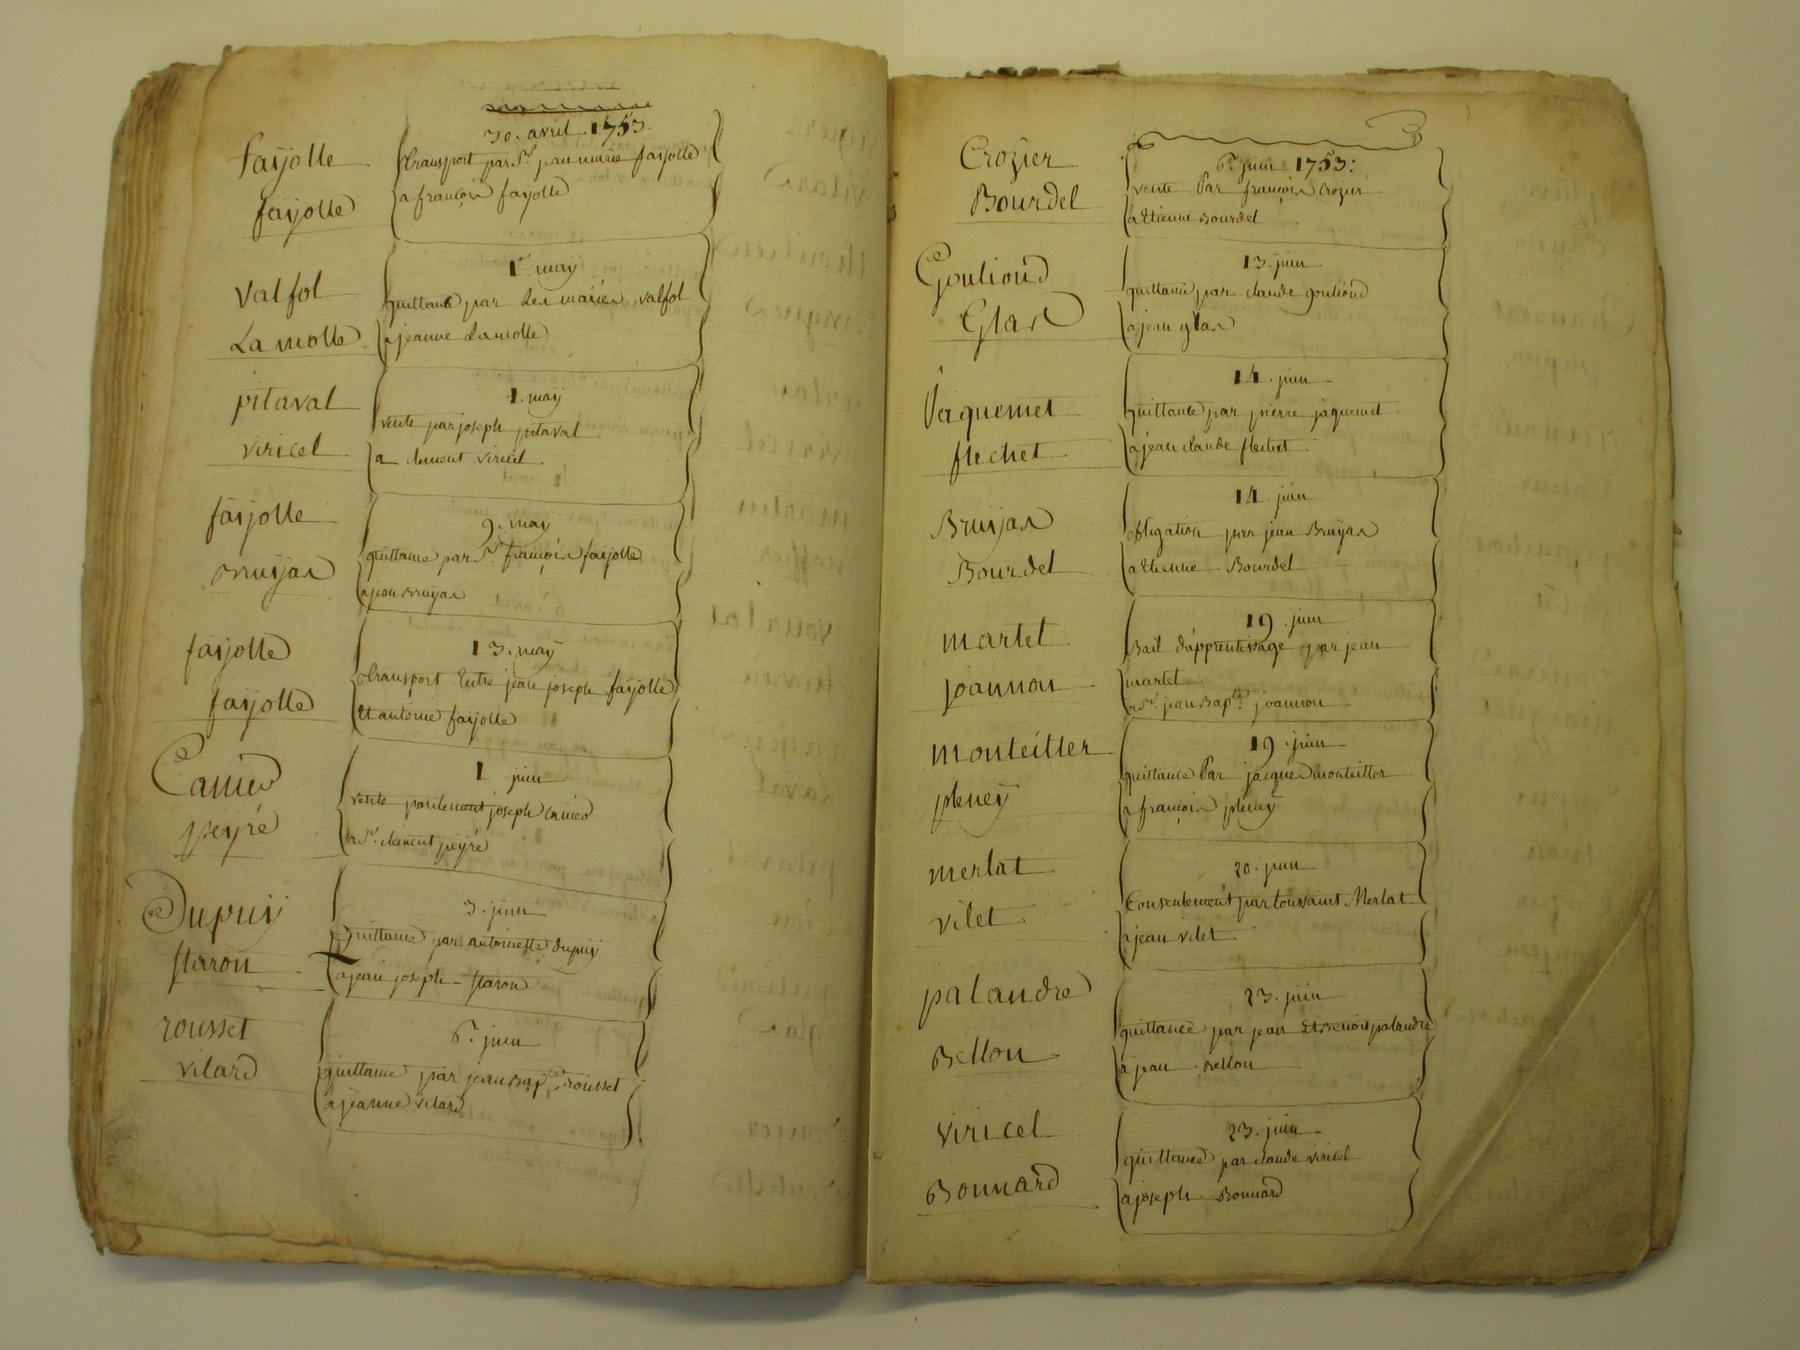 30. avril 1753.
fayolle
transport par Sr. jean marie fayolle
fayolle
a françois fayolle
1er. may
valfol
quittance par les mariés valfol
La motte
a jeanne Lamotte
1. may
pitaval
vente par joseph pitaval
viricel
a clement viricel
9. may
fayolle
quittance par Sr. françois fayolle
Bruyas
a jean Bruyas
13. may
fayolle
transport Entre jean joseph fayolle
fayolle
Et antoine fayolle
1 juin
vente par clement joseph
peyré
a Sr. clement peyré
3. juin
Dupuy
Quittance par antoinette dupuy
staron
a jean joseph staron
6. juin
rousset
quittance par jean Bapte. rousset
vilard
a jeanne vilard
6. juin 1753:
Crozier
vente Par françois Crozier
Bourdel
a Etienne Bourdel
13. juin
Goulioud
quittance par claude goulioud
Glas
a jean glas
14. juin
Jaquemet
quittance par pierre jaquemet
flechet
a jean claude flechet
14. juin
Bruyas
obligation par jean Bruyas
Bourdel
a Etienne Bourdel
19. juin
martel
Bail d'apprentissage par jean
martel
joannon
a Sr. jean Bapte. joannon
19. juin
monteiller
quittance Par jacques monteiller
pleney
a françois pleney
20. juin
merlat
Consentement par toussaint Merlat
vilet
a jean vilet
23. juin
palandre
quittance par jean Et Benoit palandre
Bellon
a jean Bellon
23. juin
viricel
quittance par claude viricel
Bonnard
a joseph Bonnard